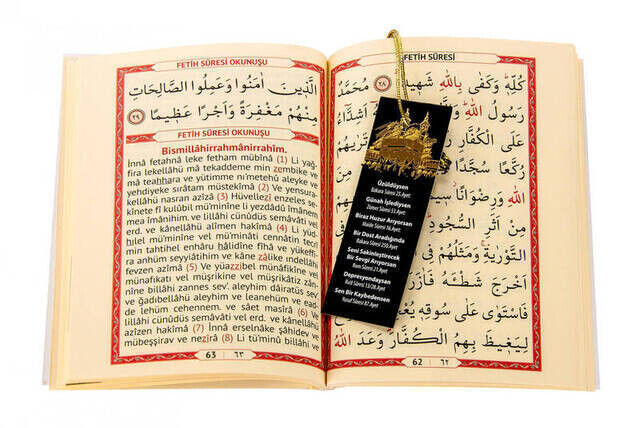 FETİH SÛRESİ
كُلِّهٖ وَكَفٰى بِاللّٰهِ شَهٖيدًا ﴿٢٨﴾ مُحَمَّدٌ
رَسُولُ اللّٰهِ اَشِدَّٓاءُ
عَلَى الْكُفَّارِ
رُكَّعًا سُجَّدًا
اللّٰهِ وَرِضْوَانًا
مِنْ اَثَرِ السُّجُودِ
التَّوْرٰيةِ وَمَثَلُهُمْ فِي
اَخْرَجَ شَطْـَٔهُ فَاٰزَرَهُ
فَاسْتَوٰى عَلٰى سُوقِهٖ يُعْجِبُ
لِيَغٖيظَ بِهِمُ الْكُفَّارَ وَعَدَ اللّٰهُ
62 | ٦٢
Üzüldüysen
Bakara Sûresi 25.Ayet
Günah İşlediysen
Zümer Sûresi 53.Ayet
Biraz Huzur Arıyorsan
Maide Sûresi 16.Ayet
Bir Dost Aradığında
Bakara Sûresi 250.Ayet
Seni Sakinleştirecek
Bir Sevgi Arıyorsan
Rum Sûresi 21.Ayet
Depresyondaysan
Rad Sûresi 13/28.Ayet
Sen Bir Kaybedensen
Yusuf Sûresi 87.Ayet
FETİH SÛRESİ OKUNUŞU
الَّذٖينَ اٰمَنُوا وَعَمِلُوا الصَّالِحَاتِ
مِنْهُمْ مَغْفِرَةً وَاَجْرًا عَظٖيمًا ﴿٢٩﴾
FETİH SÛRESİ OKUNUŞU
Bismillâhirrahmânirrahîm.
İnnâ fetahnâ leke fetham mübînâ (1) Li yağ-
fira lekellâhü mâ tekaddeme min zembike ve
mâ teahhara ve yütimme ni'metehû aleyke ve
yehdiyeke sırâtam müstekîmâ (2) Ve yensura-
kellâhü nasran azîzâ (3) Hüvellezî enzeles se-
kînete fî kulûbil mü'minîne li yezdâdû îmânem
mea îmânihim. ve lillâhi cünûdüs semâvâti vel
erd. ve kânellâhü alîmen hakîmâ (4) Li yüd-
hılel mü'minîne vel mü'minâti cennâtin tecrî
min tahtihel enhâru hâlidîne fîhâ ve yükeffi-
ra anhüm seyyiâtihim ve kâne zâlike ındellâhi
fevzen azîmâ (5) Ve yüazzibel münâfikîne vel
münafikati vel müşrikîne vel müşrikâtiz zân-
nîne billâhi zannes sev'. aleyhim dâiratüs sev'
ve ğadıbellâhü aleyhim ve leanehüm ve ead-
de lehüm cehennem. ve sâet masîrâ (6) Ve
lillâhi cünûdüs semâvâti vel erd. ve kânellâhü
azîzen hakîmâ (7) İnnâ erselnâke şâhidev ve
mübeşşirav ve nezîrâ (8) Li tü'minû billâhi ve
63 | ٦٣